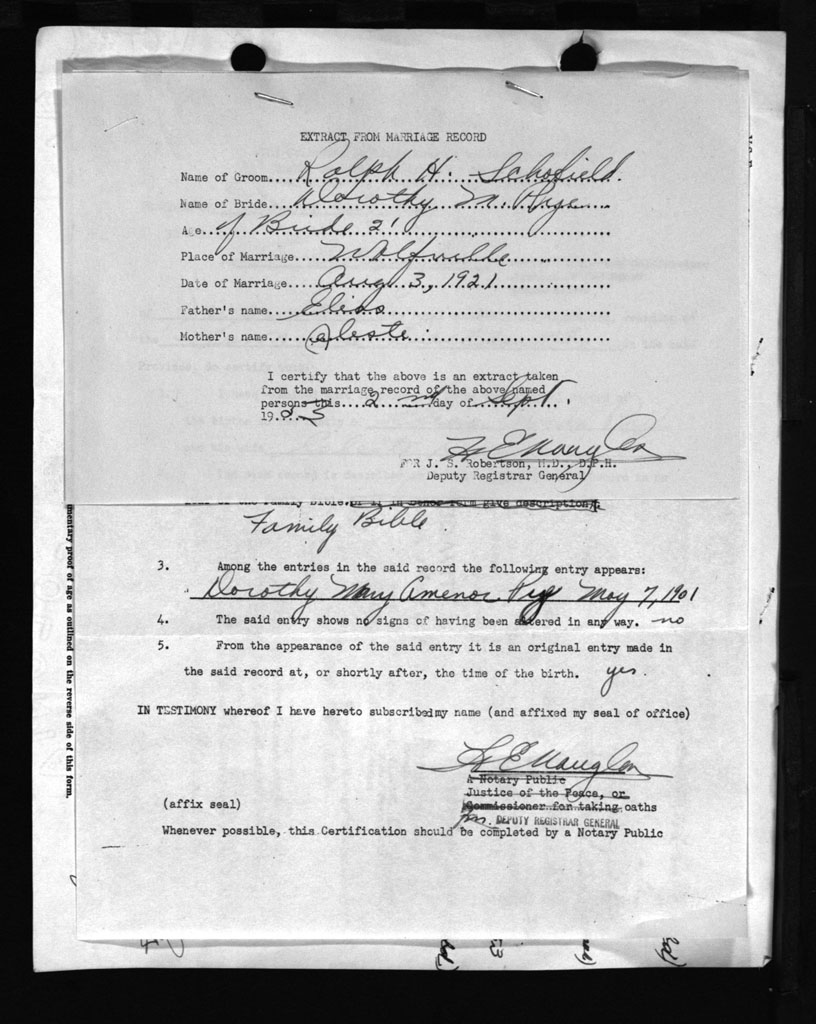 EXTRACT FROM MARRIAGE RECORD
Name of Groom....Ralph H. Schofield.
Name of Bride....Dorothy M. Pye
Age...of Bride 21
Place of Marriage....Wolfville
Date of Marriage....Aug 3, 1921
Father's name....Elias
Mother's name....Celeste
I certify that the above is an extract taken
from the marriage record of the above named
persons this....2 nd day of..Sept.
1953
FOR J. S. Robertson, M.D., D.P.H.
Deputy Registrar General
of the Family Bible. or if in other form give description.
Family Bible
3. Among the entries in the said record the following entry appears:
Dorothy Mary Amenor Pye May 7, 1901
4. The said entry shows no signs of having been altered in any way. no
5. From the appearance of the said entry it is an original entry made in
the said record at, or shortly after, the time of the birth. yes.
IN TESTIMONY whereof I have hereto subscribed my name (and affixed my seal of office)
A Notary Public
Justice of the Peace, or
(affix seal) Commissioner for taking oaths
DEPUTY REGISTRAR GENERAL
Whenever possible, this Certification should be completed by a Notary Public
mentary proof of age as outlined on the reverse side of this form.
53